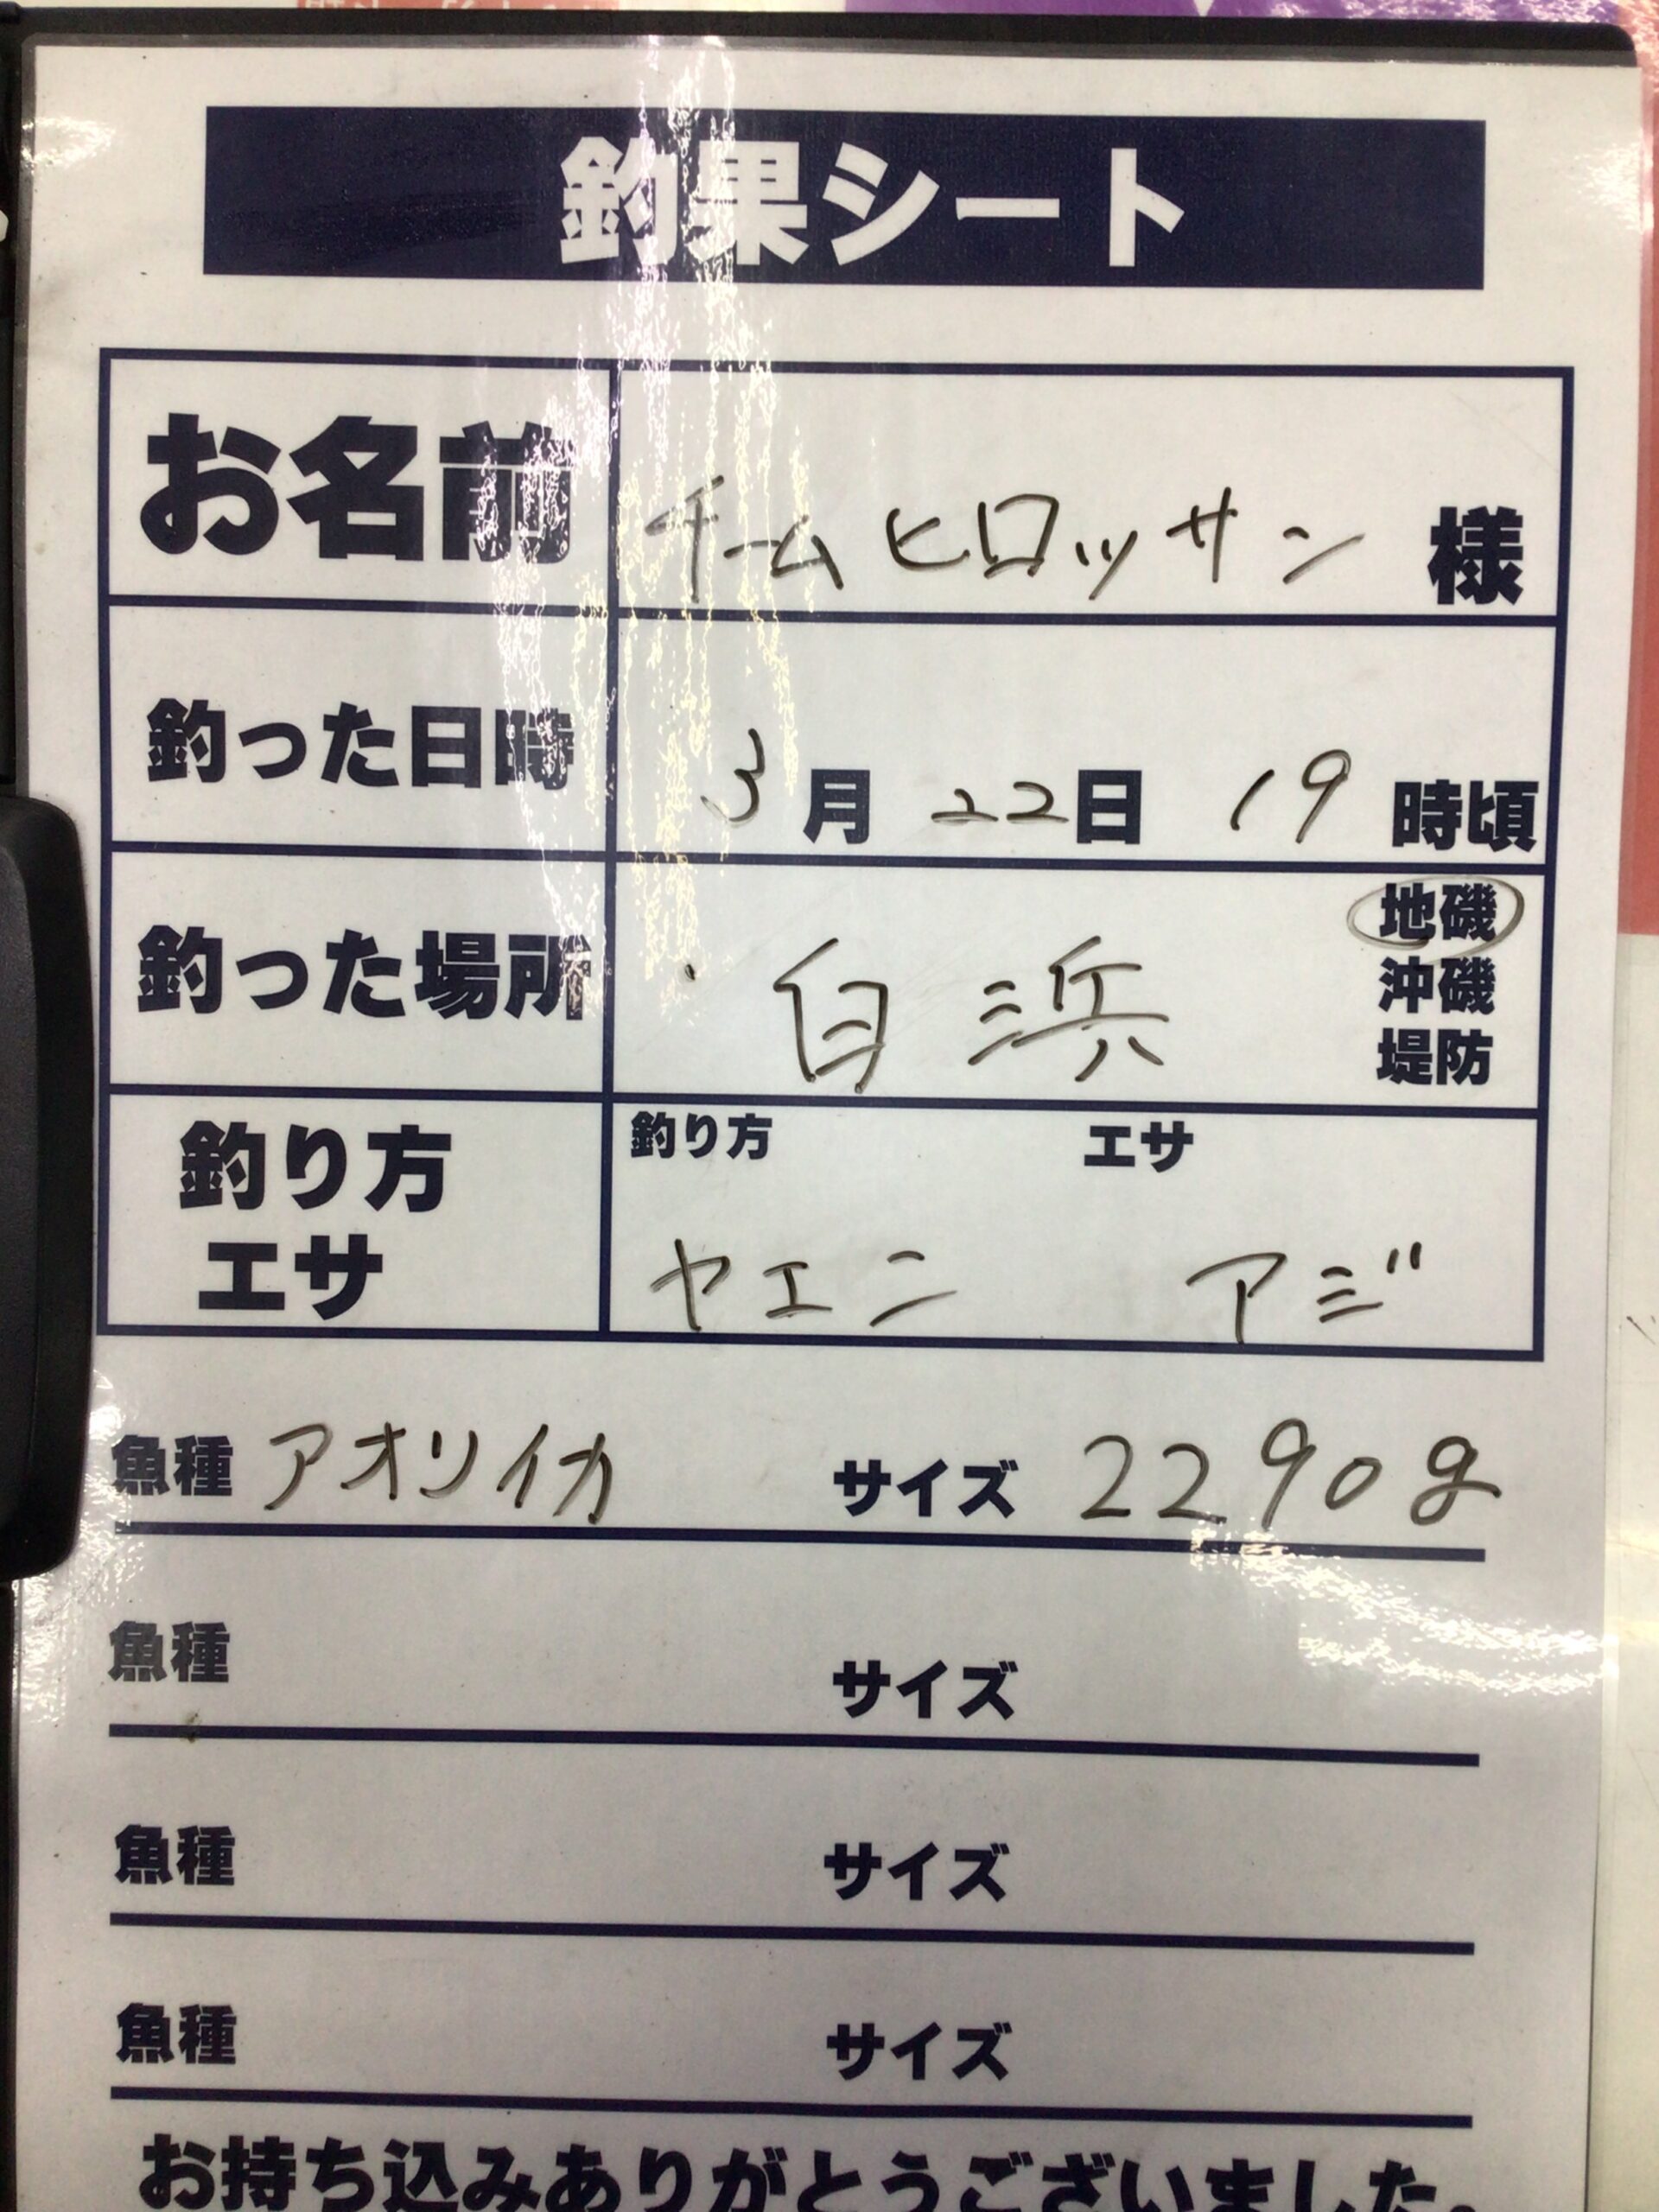 釣果シート
お名前 チームヒロッサン 様
釣った日時 3月 22日 19時頃
釣った場所 白浜 地磯
沖磯
堤防
釣り方 エサ
釣り方
エサ
ヤエン アジ
魚種 アオリイカ サイズ 2290g
魚種 サイズ
魚種 サイズ
魚種 サイズ
お持ち込みありがとうございました。